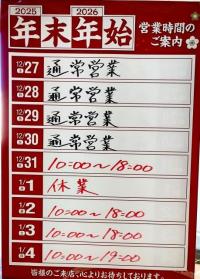 2025 2026
年末年始
営業時間の
ご案内
12/27 通常営業
12/28 通常営業
12/29 通常営業
12/30 通常営業
12/31 10:00～18:00
1/1 休業
1/2 10:00～18:00
1/3 10:00～18:00
1/4 10:00～19:00
皆様のご来店、心よりお待ちしております。